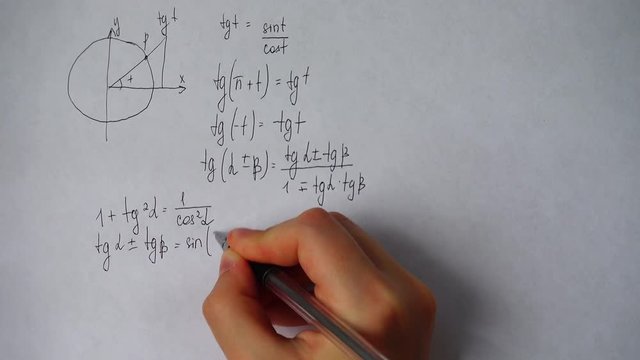 y
tg t
P
t
x
tg t = sin t / cos t
tg(π + t) = tg t
tg(-t) = -tg t
tg(α ± β) = tg α ± tg β / 1 ∓ tg α · tg β
1 + tg²α = 1 / cos²α
tg α ± tg β = sin(